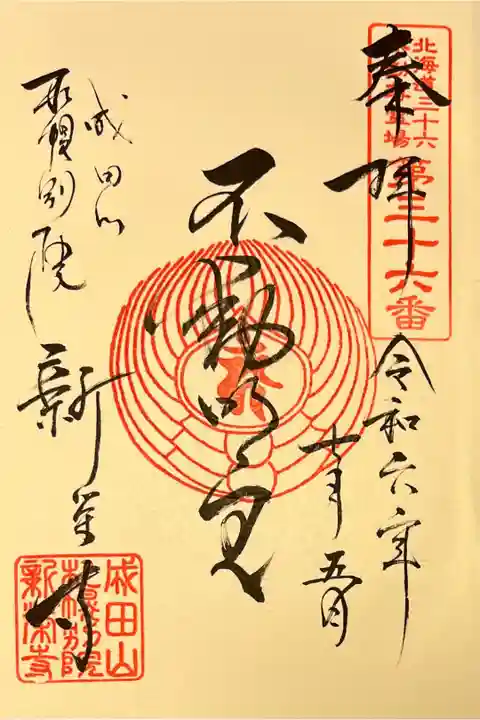 奉拝
北海道三十六
不動尊霊場
第三十六番
令和六年
十月五日
不動明王
成田山
札幌別院
新栄寺
成田山
札幌別院
新栄寺